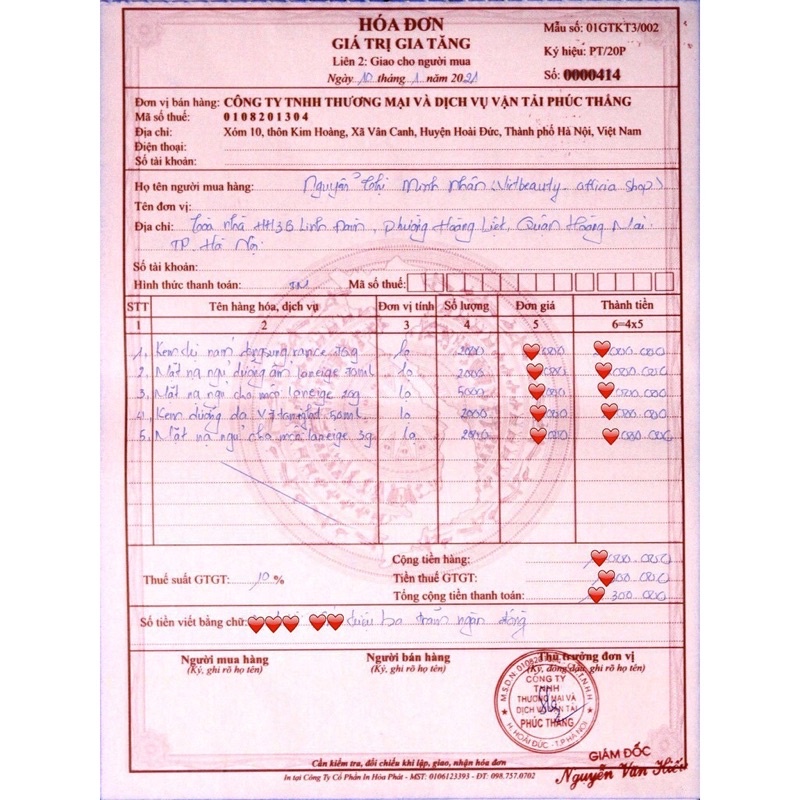 HÓA ĐƠN
GIÁ TRỊ GIA TĂNG
Liên 2: Giao cho người mua
Ngày 10 tháng 1 năm 2021
Mẫu số: 01GTKT3/002
Ký hiệu: PT/20P
Số: 0000414
Đơn vị bán hàng: CÔNG TY TNHH THƯƠNG MẠI VÀ DỊCH VỤ VẬN TẢI PHÚC THẮNG
Mã số thuế: 0108201304
Địa chỉ: Xóm 10, thôn Kim Hoàng, Xã Vân Canh, Huyện Hoài Đức, Thành phố Hà Nội, Việt Nam
Điện thoại:
Số tài khoản:
Họ tên người mua hàng: Nguyễn Thị Minh Nhân (Vietbeauty - officia shop)
Tên đơn vị:
Địa chỉ: Tòa nhà HH3B Linh Đàm, phường Hoàng Liệt, Quận Hoàng Mai.
TP. Hà Nội.
Số tài khoản:
Hình thức thanh toán: TM Mã số thuế:
STT Tên hàng hóa, dịch vụ Đơn vị tính Số lượng Đơn giá Thành tiền
1 2 3 4 5 6=4x5
1. Kem dị nám 2000 000 000.000
2. Mặt nạ ngủ dưỡng ẩm laneige 70ml lọ 2000 000 000.000
3. Mặt nạ ngủ cho môi laneige 20g lọ 5000 000 000.000
4. Kem dưỡng da V7 50ml lọ 2000 000 000.000
5. Mặt nạ ngủ cho môi laneige 3g lọ 2000 000 000.000
Cộng tiền hàng: 000.000
Thuế suất GTGT: 10 % Tiền thuế GTGT: 00.000
Tổng cộng tiền thanh toán: 300.000
Số tiền viết bằng chữ: triệu ba trăm ngàn đồng
Người mua hàng Người bán hàng Thủ trưởng đơn vị
(Ký, ghi rõ họ tên) (Ký, ghi rõ họ tên) (Ký, đóng dấu, ghi rõ họ tên)
CÔNG TY
TNHH
THƯƠNG MẠI VÀ
DỊCH VỤ VẬN TẢI
PHÚC THẮNG
H. HOÀI ĐỨC - T.P HÀ NỘI
GIÁM ĐỐC
Nguyễn Văn Hiếu
Cần kiểm tra, đối chiếu khi lập, giao, nhận hóa đơn
In tại Công Ty Cổ Phần In Hòa Phát - MST: 0106123393 - ĐT: 098.757.0702